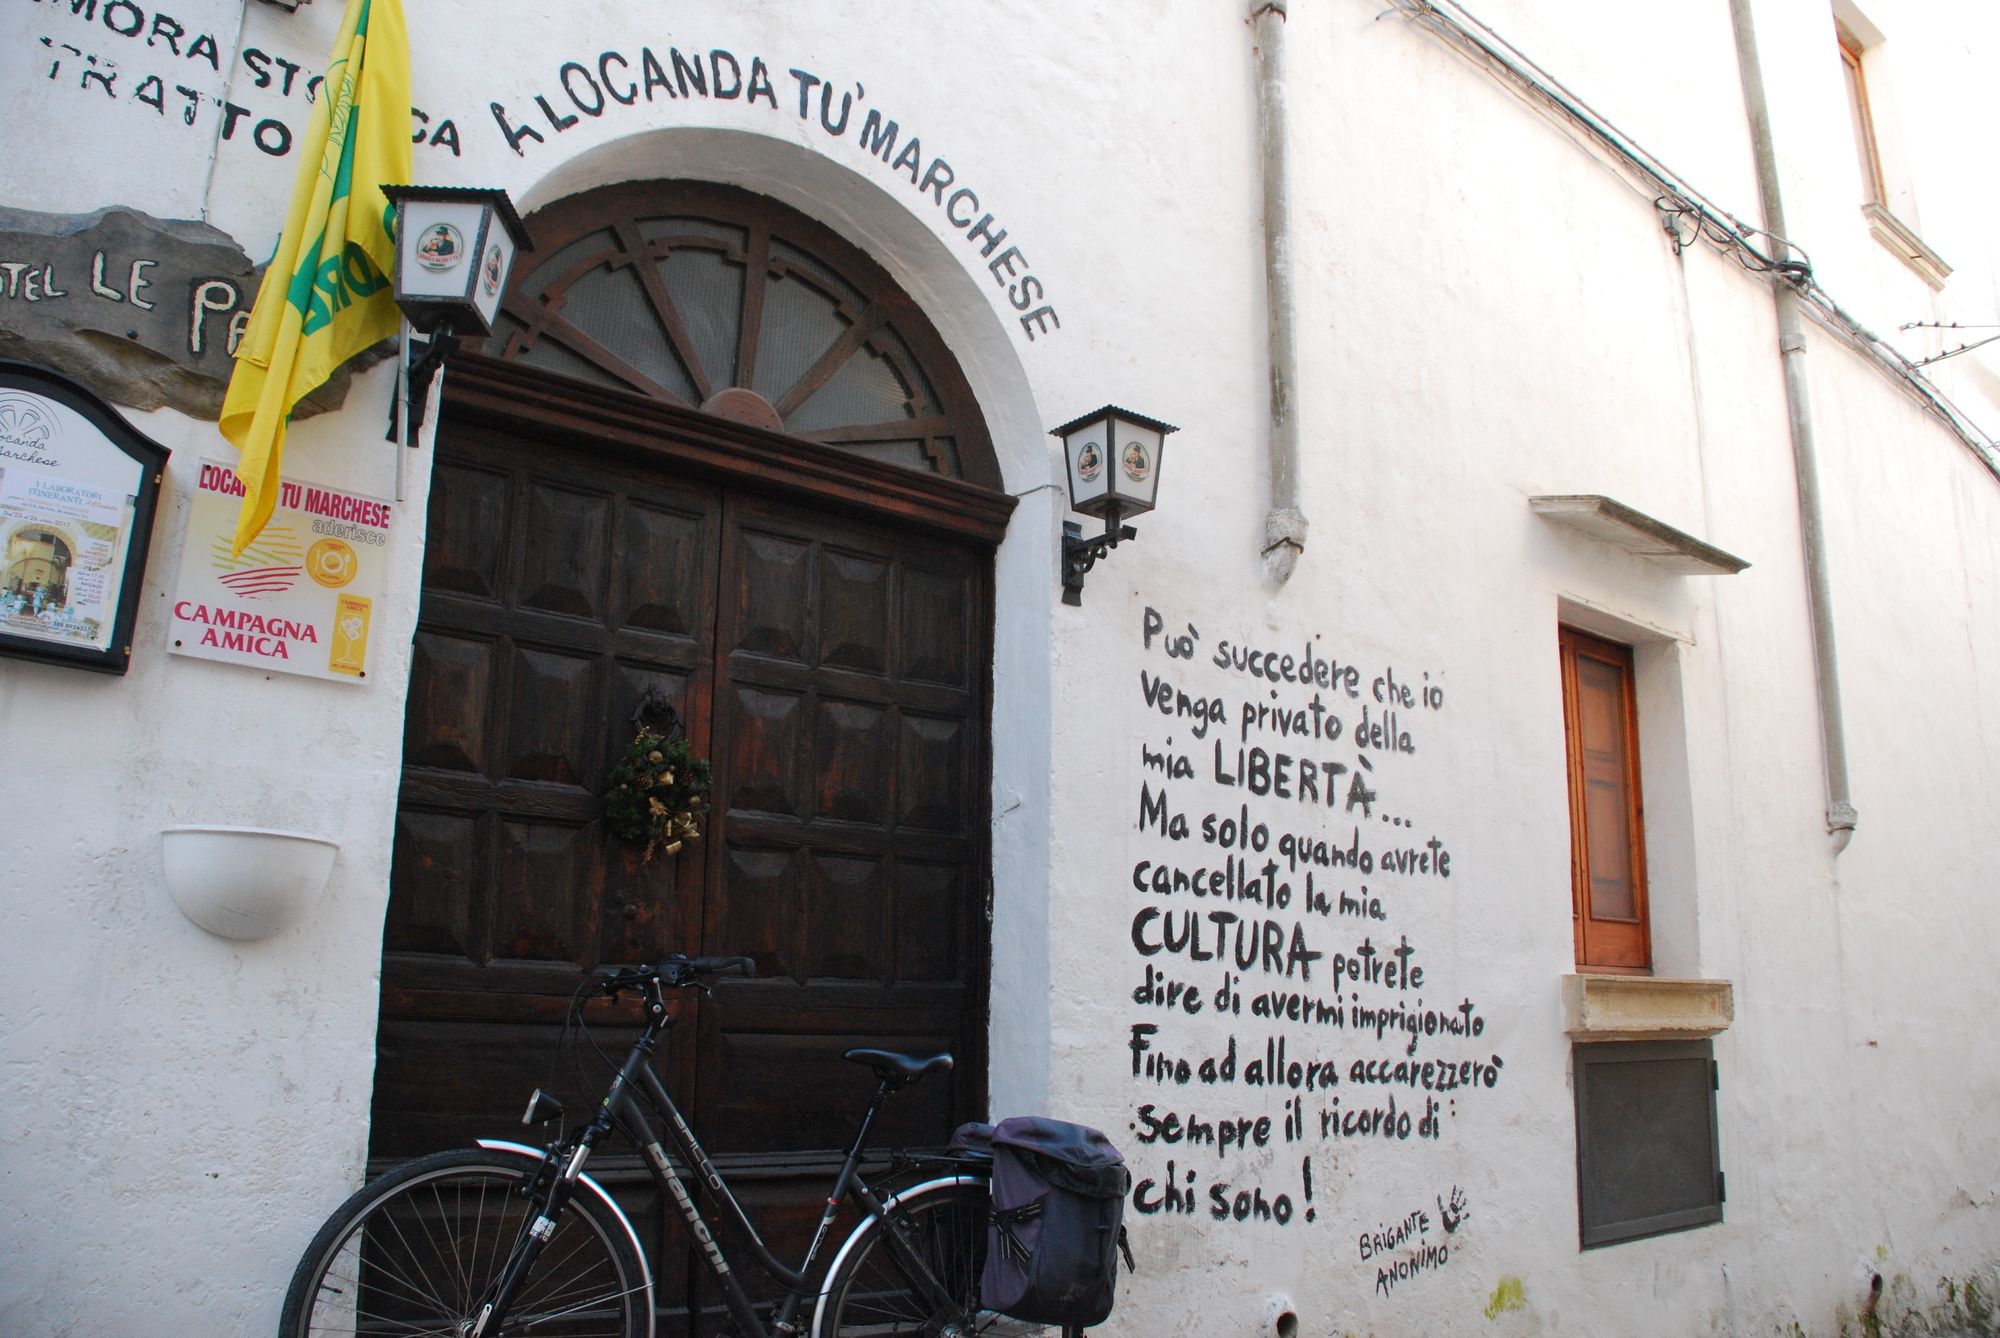 MORA STO CA
TRATTO
A LOCANDA TU' MARCHESE
LE
LOCANDA TU MARCHESE
aderisce
CAMPAGNA
AMICA
I LABORATORI
ITINERANTI
Può succedere che io
venga privato della
mia LIBERTÀ...
Ma solo quando avrete
cancellato la mia
CULTURA potrete
dire di avermi imprigionato
Fino ad allora accarezzerò
sempre il ricordo di
chi sono!
BRIGANTE
ANONIMO
SPILLO
Bianchi